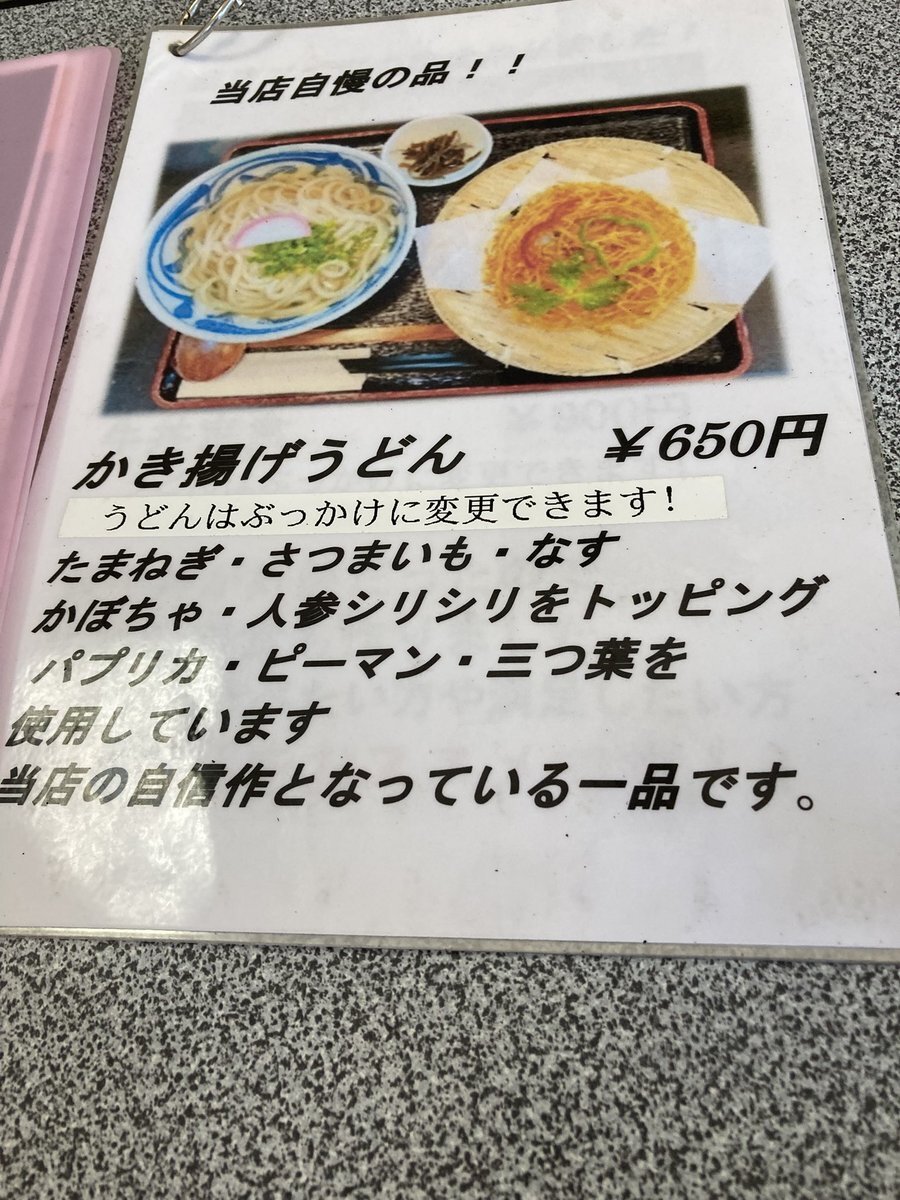 当店自慢の品！！
かき揚げうどん ￥650円
うどんはぶっかけに変更できます!
たまねぎ・さつまいも・なす
かぼちゃ・人参シリシリをトッピング
パプリカ・ピーマン・三つ葉を
使用しています
当店の自信作となっている一品です。